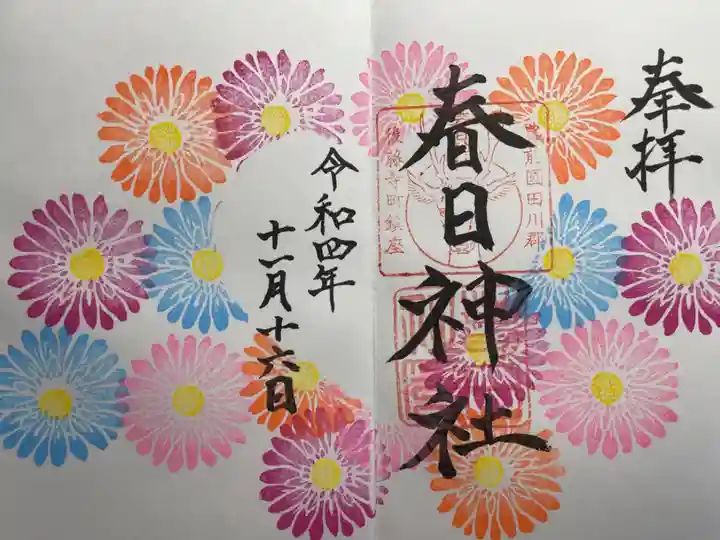 奉拝
春日神社
豊前国田川郡
後藤寺町鎮座
令和四年
十一月十六日